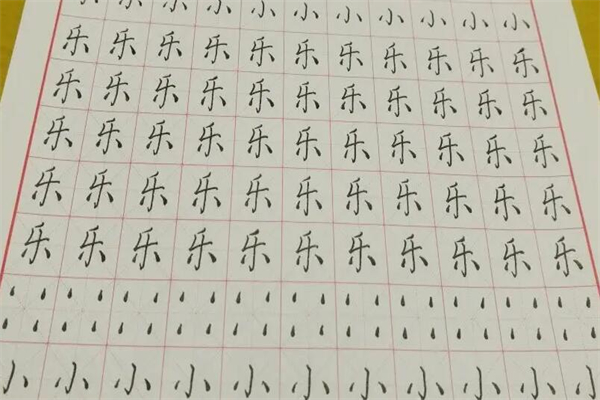 小小小小小小小小小小小
乐乐乐乐乐乐乐乐乐乐乐
乐乐乐乐乐乐乐乐乐乐乐
乐乐乐乐乐乐乐乐乐乐乐
乐乐乐乐乐乐乐乐乐乐乐
乐乐乐乐乐乐乐乐乐乐乐
小小小小小小小小小小小